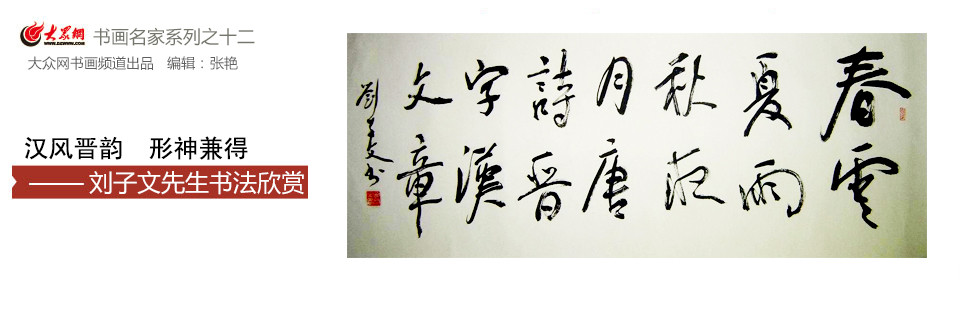 大众網
WWW.DZWWW.COM
书画名家系列之十二
大众网书画频道出品 编辑：张艳
汉风晋韵 形神兼得
—— 刘子文先生书法欣赏
春雲
夏雨
秋夜
月唐
詩晉
字漢
文章
劉子文书